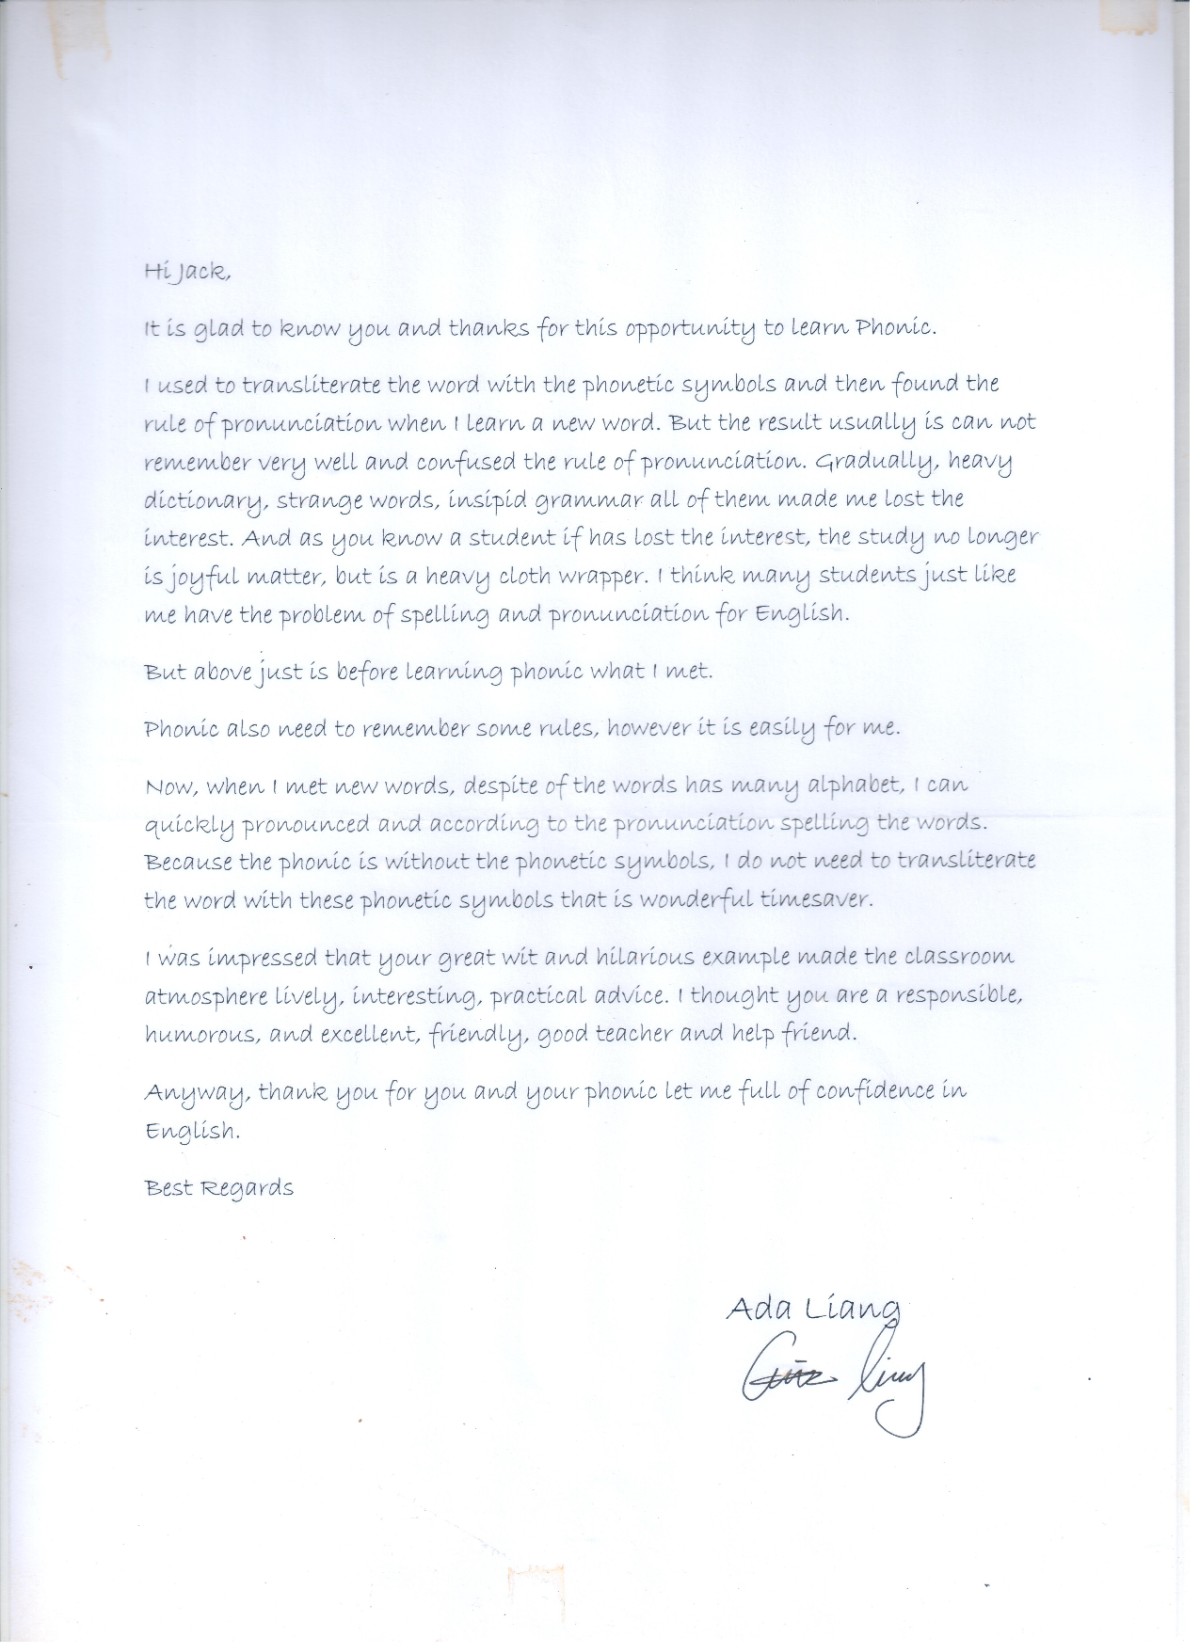 Hi Jack,
It is glad to know you and thanks for this opportunity to learn Phonic.
I used to transliterate the word with the phonetic symbols and then found the
rule of pronunciation when I learn a new word. But the result usually is can not
remember very well and confused the rule of pronunciation. Gradually, heavy
dictionary, strange words, insipid grammar all of them made me lost the
interest. And as you know a student if has lost the interest, the study no longer
is joyful matter, but is a heavy cloth wrapper. I think many students just like
me have the problem of spelling and pronunciation for English.
But above just is before learning phonic what I met.
Phonic also need to remember some rules, however it is easily for me.
Now, when I met new words, despite of the words has many alphabet, I can
quickly pronounced and according to the pronunciation spelling the words.
Because the phonic is without the phonetic symbols, I do not need to transliterate
the word with these phonetic symbols that is wonderful timesaver.
I was impressed that your great wit and hilarious example made the classroom
atmosphere lively, interesting, practical advice. I thought you are a responsible,
humorous, and excellent, friendly, good teacher and help friend.
Anyway, thank you for you and your phonic let me full of confidence in
English.
Best Regards
Ada Liang